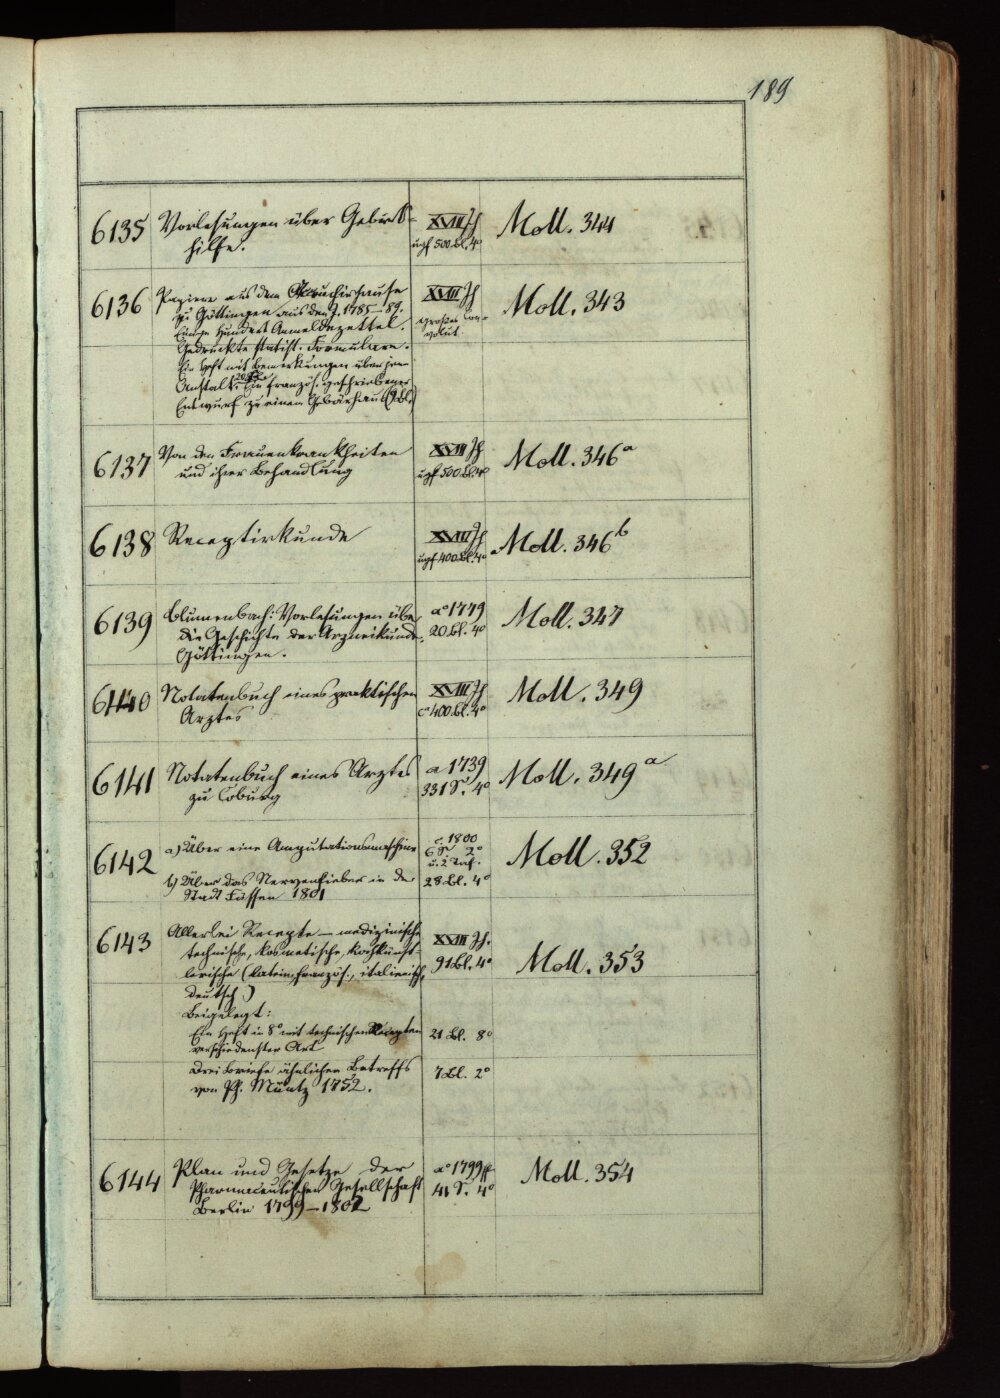 189
6135 Vorlesungen über Geburts- XVIII Jh Moll. 344
hilfe. ugf 500 Bl. 4°
6136 Papiere aus dem Accouchirhause XVIII Jh Moll. 343
zu Göttingen aus den J. 1785–89. großes Con-
Einige Hundert Anmeldezettel. volut.
Gedruckte statist. Formulare.
Ein Heft mit Bemerkungen über jene
Anstalt. Ein französ. geschriebener
Entwurf zu einem Gebärhaus
6137 Von den Frauenkrankheiten XVIII Jh Moll. 346a
und ihrer Behandlung ugf 500 Bl. 4°
6138 Receptirkunde XVIII Jh Moll. 346b
ugf 400 Bl. 4°
6139 Blumenbach: Vorlesungen über a° 1779 Moll. 347
die Geschichte der Arzneikunde. 20 Bl. 4°
Göttingen.
6140 Notatenbuch eines praktischen XVIII Jh Moll. 349
Arztes c° 400 Bl. 4°
6141 Notatenbuch eines Arztes a 1739 Moll. 349a
zu Coburg 331 S. 4°
6142 a) Über eine Amputationsmaschine c. 1800 Moll. 352
6 S 2°
u. 2 Taf.
b) Über das Nervenfieber in der 28 Bl. 4°
Stadt Füssen 1801
6143 Allerlei Recepte – medizinische XVIII Jh. Moll. 353
technische, kosmetische, kochkünst- 91 Bl. 4°
lerische (latein, französ., italienisch,
deutsch)
Beigelegt:
Ein Heft in 8° mit technischen Recepten 21 Bl. 8°
verschiedenster Art
Drei Briefe ähnlichen Betreffs 7 Bl. 2°
von Ph. Müntz 1752.
6144 Plan und Gesetze der a° 1799 ff Moll. 354
Pharmaceutischen Gesellschaft 41 S. 4°
Berlin 1799–1802